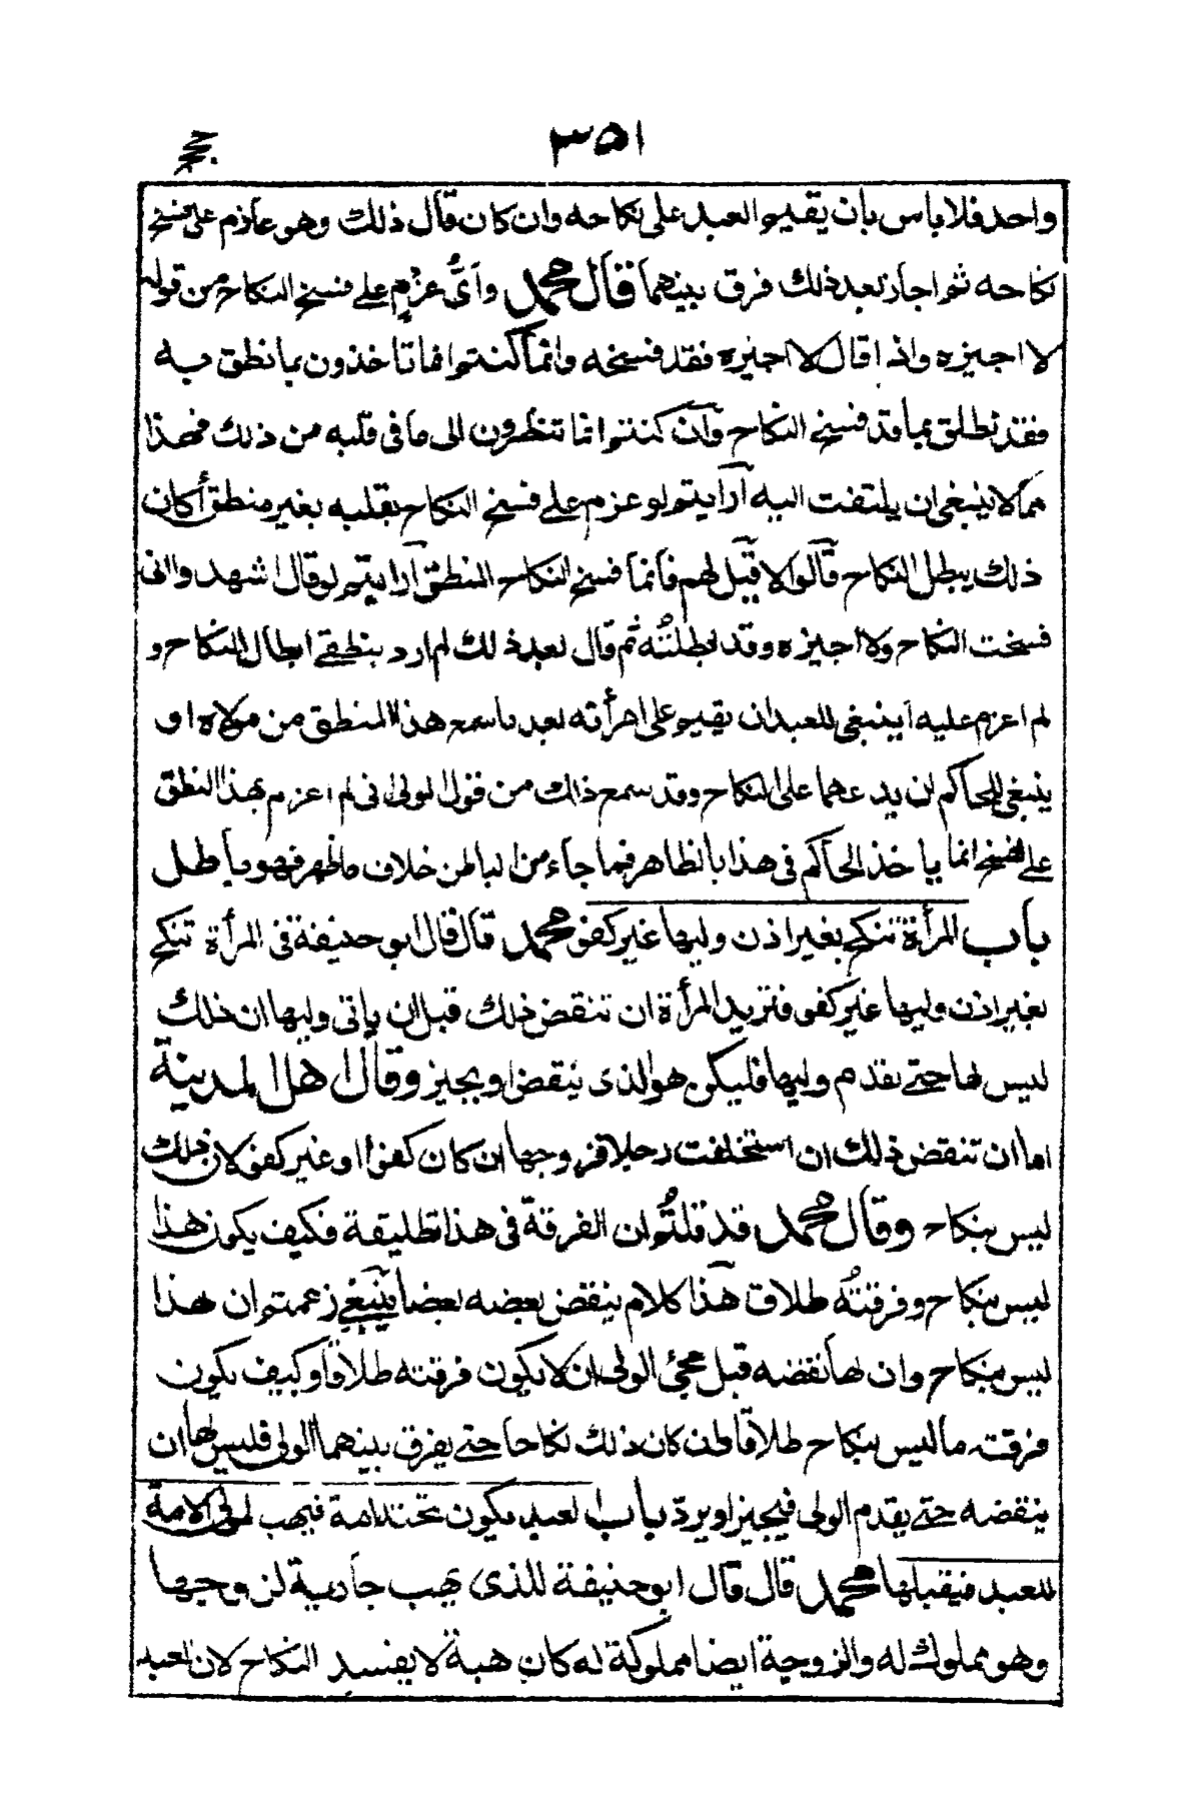 ٣٥١
واحد فلا باس بان يقيم العبد على نكاحه وان كان قال ذلك وهو عازم على فسخ
نكاحه ثم اجاز بعد ذلك فرق بينهما قال محمد وأيُّ عزم على فسخ النكاح من قوله
لا اجيزه واذا قال لا اجيزه فقد فسخه وانما كنتم انما تاخذون بما نطق به
فقد نطق بما قد فسخ النكاح وان كنتم انما تنظرون الى ما في قلبه من ذلك فهذا
مما لا ينبغي ان يلتفت اليه أرايتم لو عزم على فسخ النكاح بقلبه بغير منطق أكان
ذلك يبطل النكاح قالوا لا قيل لهم فانما فسخ النكاح المنطق أرايتم لو قال اشهدوا اني
فسخت النكاح ولا اجيزه وقد ابطلتُه ثم قال بعد ذلك لم ارد بنطقي ابطال النكاح و
لم اعزم عليه أينبغي للعبد ان يقيم على امرأته بعد ما سمع هذا المنطق من مولاه او
ينبغي للحاكم ان يدعهما على النكاح وقد سمع ذلك من قول المولى اني لم اعزم بهذا النطق
على الفسخ انما ياخذ الحاكم في هذا بالظاهر فما جاء من الباطن خلاف ما ظهر فهو باطل
باب المرأة تنكح بغير اذن وليها غير كفو محمد قال قال ابو حنيفة في المرأة تنكح
بغير اذن وليها غير كفو فتريد المرأة ان تنقض ذلك قبل ان يأتي وليها ان ذلك
ليس لها حتى يقدم وليها فليكن هو الذي ينقض او يجيز وقال اهل المدينة
اما ان تنقض ذلك ان استخلفت رجلا فزوجها ان كان كفوًا او غير كفو لان ذلك
ليس بنكاح وقال محمد قد قلتُم ان الفرقة في هذا تطليقة فكيف يكون هذا
ليس بنكاح وفرقتُه طلاق هذا كلام ينقض بعضه بعضا ينبغي زعمتم ان هذا
ليس بنكاح وان لها نقضه قبل مجئ الولى ان لا تكون فرقته طلاقا وكيف تكون
فرقته ما ليس بنكاح طلاقا وان كان ذلك نكاحا حتى يفرق بينهما الولى فليس لها ان
ينقضه حتى يقدم الولى فيجيز او يردّ باب العبد يكون تحته امة فيهب لمولى الامة
للعبد فيقبلها محمد قال قال ابو حنيفة للذى يهب جارية لزوجها
وهو مملوك له والزوجة ايضا مملوكة له كان هبة لا يفسد النكاح لان العبد